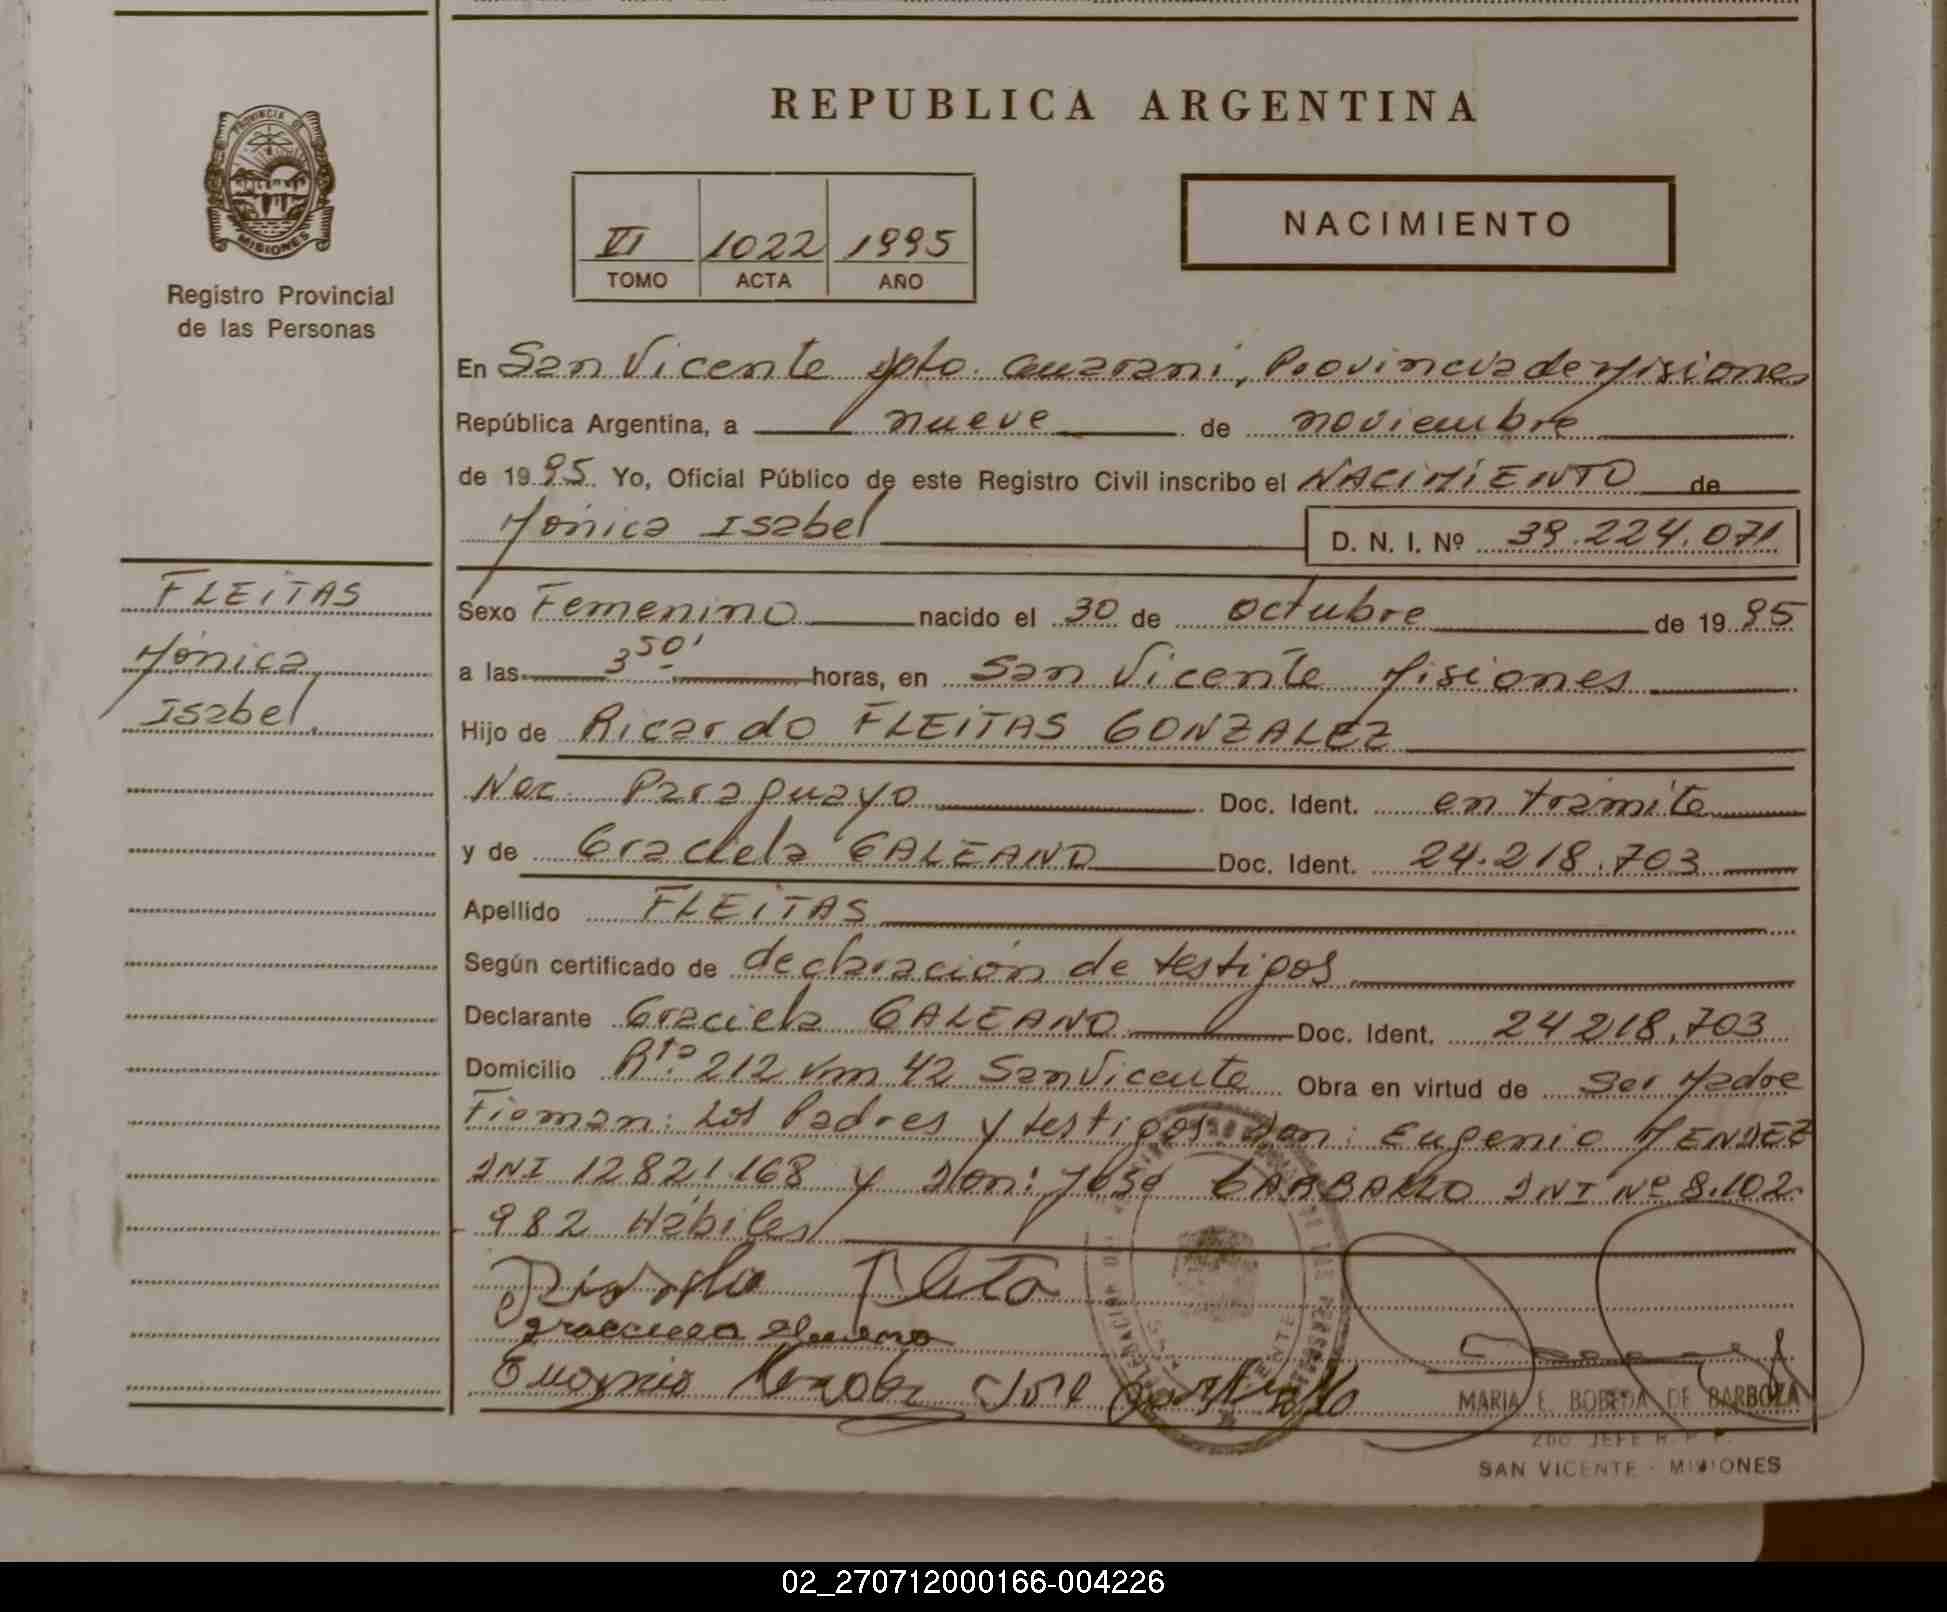 REPUBLICA ARGENTINA
PROVINCIA DE
MISIONES
Registro Provincial
de las Personas
NACIMIENTO
VI 1022 1995
TOMO ACTA AÑO
En San Vicente Dpto. Guarani, Provincia de Misiones
República Argentina, a nueve de noviembre
de 1995 Yo, Oficial Público de este Registro Civil inscribo el NACIMIENTO de
Mónica Isabel D. N. I. Nº 39.224.071
FLEITAS
Mónica
Isabel.
Sexo Femenino nacido el 30 de octubre de 1995
a las 3 50' horas, en San Vicente Misiones
Hijo de Ricardo FLEITAS GONZALEZ
Nac. Paraguayo Doc. Ident. en tramite
y de Graciela GALEANO Doc. Ident. 24.218.703
Apellido FLEITAS
Según certificado de declaración de testigos
Declarante Graciela GALEANO Doc. Ident. 24 218.703
Domicilio Rta. 212 Km 42 San Vicente Obra en virtud de Ser Madre
Firman: Los Padres y testigos Don: Eugenio MENDEZ
DNI 12821.168 y Don: José CARBALLO DNI Nº 8.102.
982 Hábiles
Eugenio Mendez José
MARIA E. BOBEDA DE BARBOZA
2do JEFE R. P. P.
SAN VICENTE - MISIONES
02_270712000166-004226